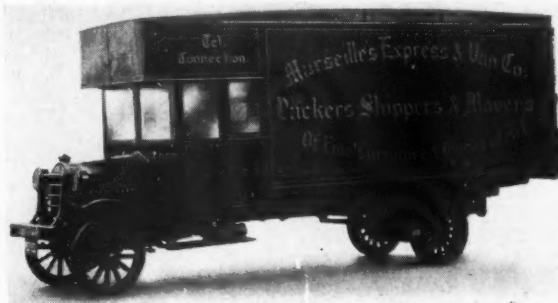 Tel.
Connection.
Marseille's Express & Van Co.
Packers Shippers & Movers
Of Fine Furniture